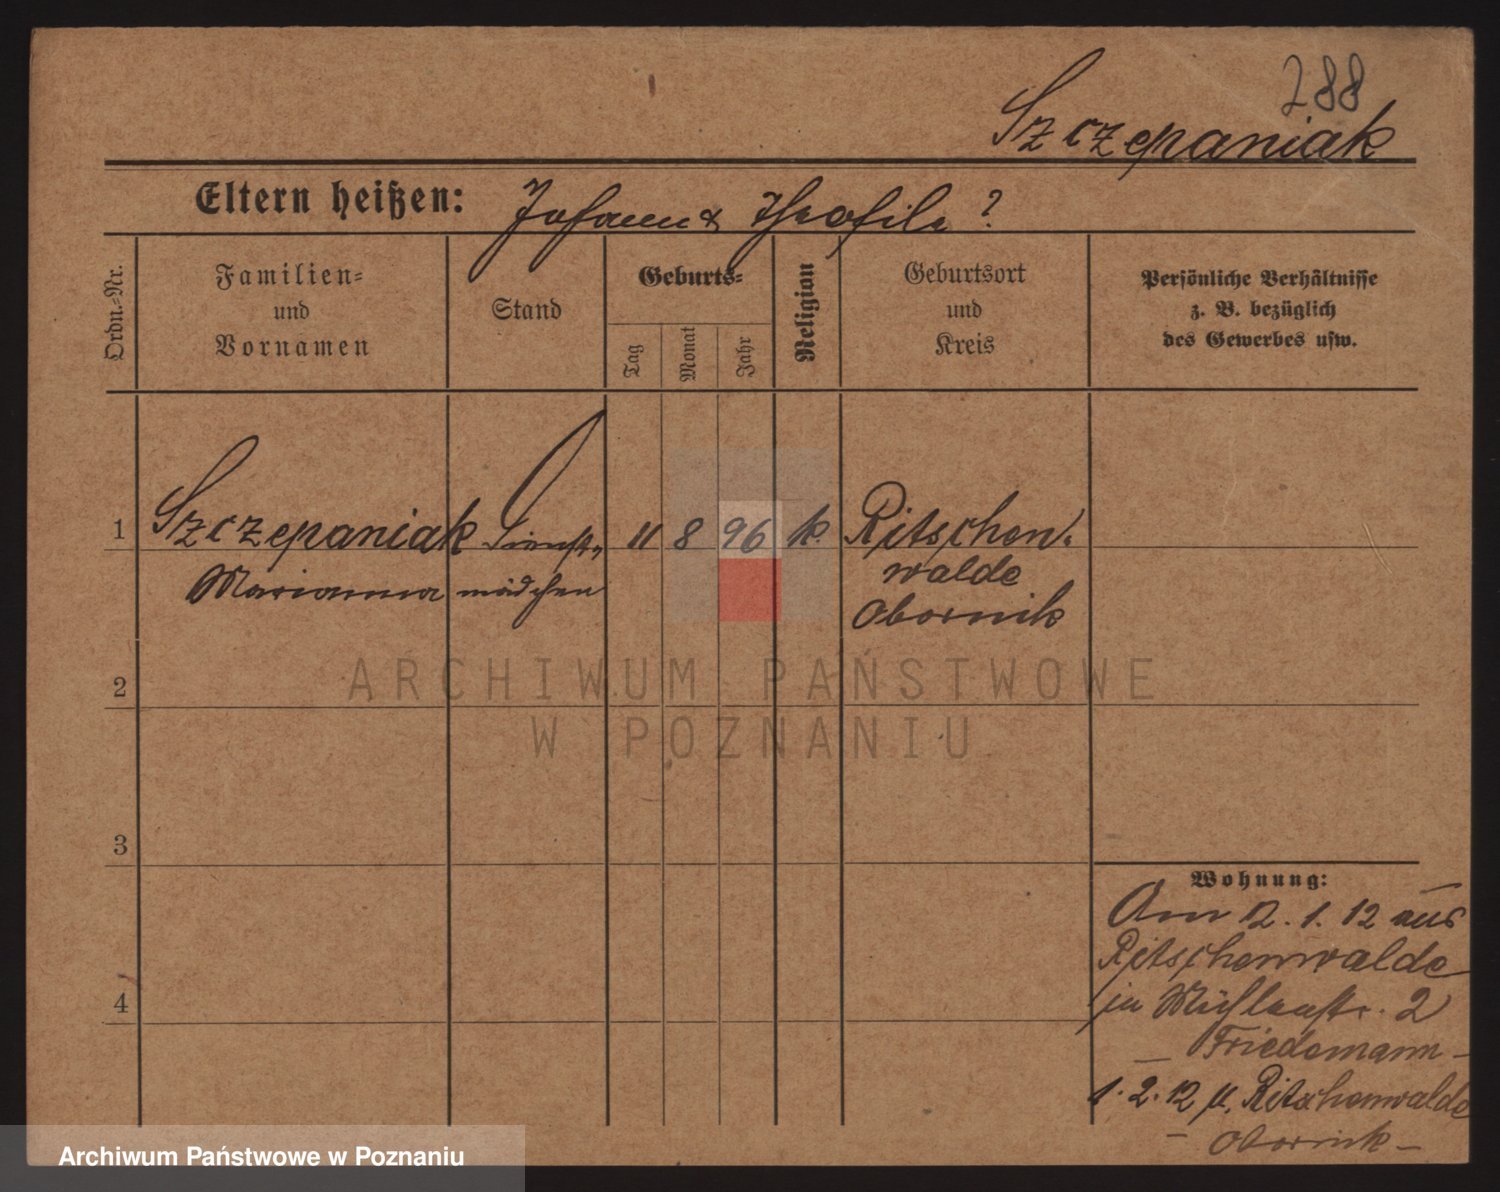 288
Szczepaniak
Eltern heißen: Johann & Theofile ?
Ordn.=Nr.
Familien=
und
Vornamen
Stand
Geburts=
Tag
Monat
Jahr
Religion
Geburtsort
und
Kreis
Persönliche Verhältnisse
z. B. bezüglich
des Gewerbes usw.
1 Szczepaniak Dienst= 11 8 96 k. Ritschen=
Marianna mädchen walde
Obornik
ARCHIWUM PAŃSTWOWE
W POZNANIU
2
3
4
Wohnung:
Am 12. 1. 12 aus
Ritschenwalde
in Mühlenstr. 2
— Friedemann —
1. 2. 12 n. Ritschenwalde
— Obornik —
Archiwum Państwowe w Poznaniu